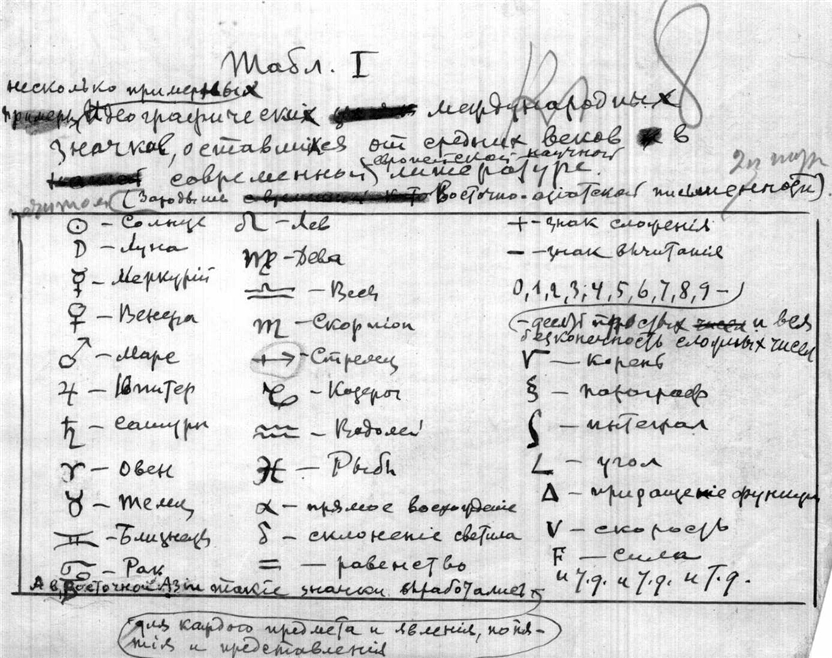 Табл. I
несколько примерных
идеографических международных
значков, оставшихся от средних веков в
современной европейской научной литературе.
(Зародыши Восточно-азиатской письменности).
☉ – Солнце ♌ – Лев + – знак сложенія
☽ – Луна ♍ – Дева − – знак вычитанія
☿ – Меркурій ♎ – Весы 0,1,2,3,4,5,6,7,8,9 –
♀ – Венера ♏ – Скорпіон – десять простых и вся
безконечность сложных чисел
♂ – Марс ♐ – Стрелец √ – корень
♃ – Юпитер ♑ – Козерог § – параграф
♄ – Сатурн ♒ – Водолей ∫ – интеграл
♈ – Овен ♓ – Рыбы ∠ – угол
♉ – Телец α – прямое восхожденіе Δ – приращеніе функции
♊ – Близнецы δ – склоненіе светила V – скорость
♋ – Рак = – равенство F – сила
и т.д. и т.д. и т.д.
А в Восточной Азіи такіе значки выработались
для каждого предмета и явленія, поня-
тія и представленія